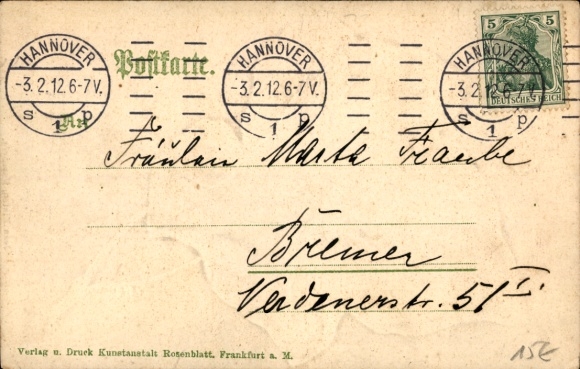 HANNOVER
-3.2.12.6-7V.
s 1 p
HANNOVER
-3.2.12.6-7V.
s 1 p
HANNOVER
-3.2.12.6-7V.
s 1 p
5 5
DEUTSCHES REICH
Postkarte.
An
Fräulein Marta Fraube
Bremen
Verdenerstr. 51 I.
Verlag u. Druck Kunstanstalt Rosenblatt, Frankfurt a. M.
15E